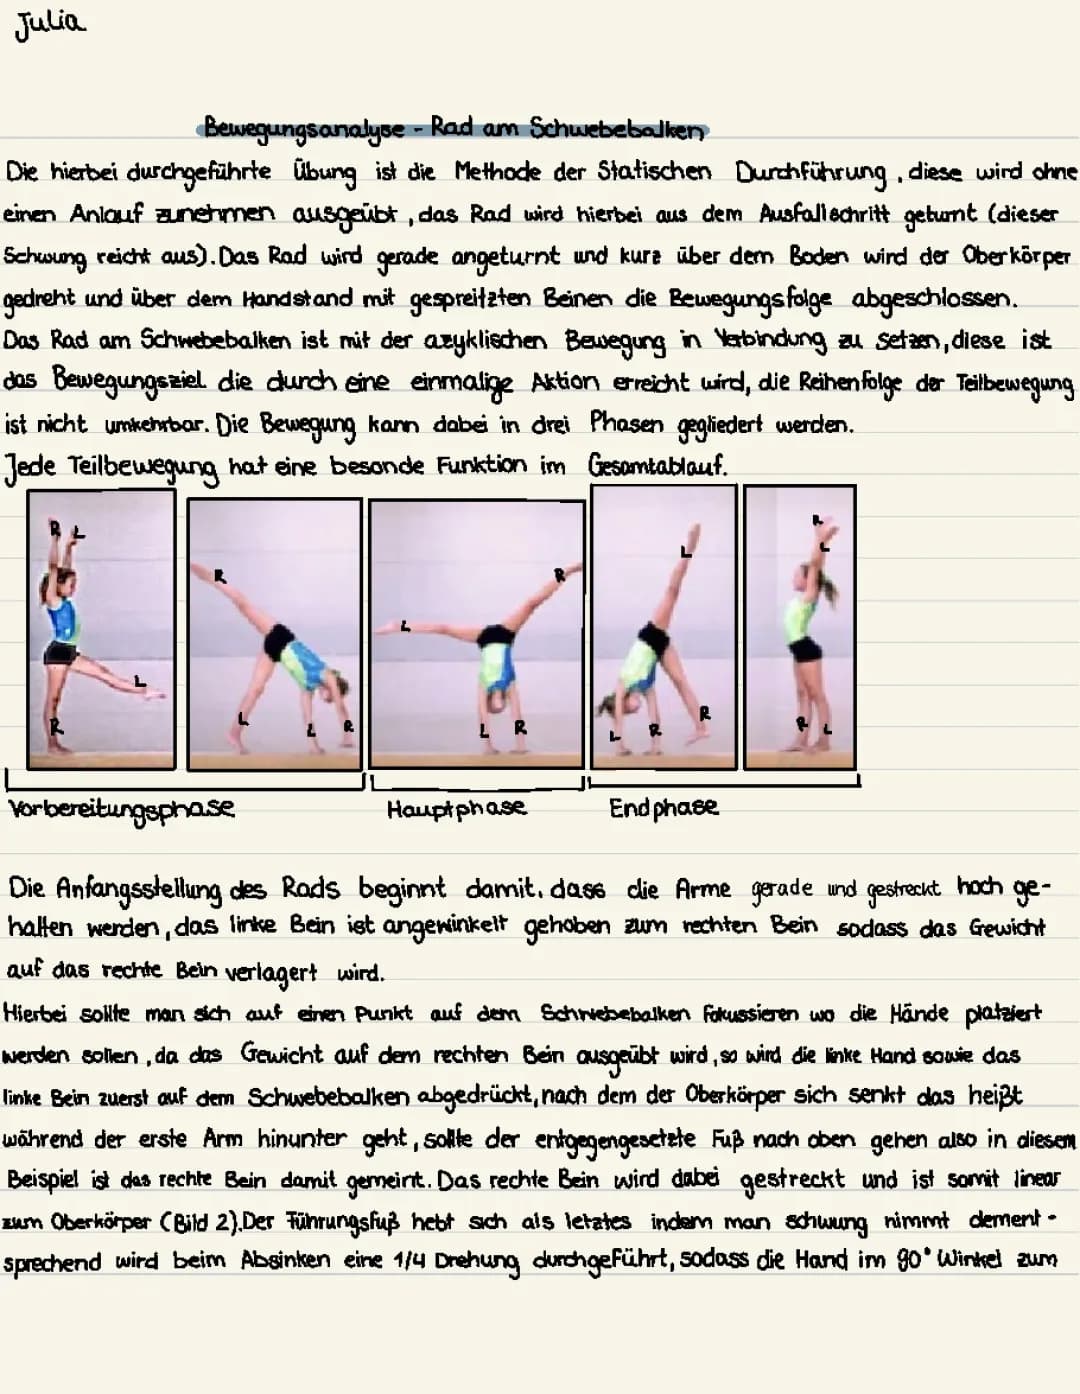 Julia
Bewegungsanalyse - Rad am Schwebebalken
Die hierbei durchgeführte Übung ist die Methode der Statischen Durchführung, diese wird ohne
einen Anlauf zunehmen ausgeübt, das Rad wird hierbei aus dem Ausfallschritt geturnt (dieser
Schwung reicht aus). Das Rad wird gerade angeturnt und kurz über dem Boden wird der Oberkörper
gedreht und über dem Handstand mit gespreitzten Beinen die Bewegungsfolge abgeschlossen.
Das Rad am Schwebebalken ist mit der azyklischen Bewegung in Verbindung zu setzen, diese ist
das Bewegungsziel die durch eine einmalige Aktion erreicht wird, die Reihenfolge der Teilbewegung
ist nicht umkehrbar. Die Bewegung kann dabei in drei Phasen gegliedert werden.
Jede Teilbewegung hat eine besonde Funktion im Gesamtablauf.
R L R L R L R
L R L L R L R L R R L R L
Vorbereitungsphase Hauptphase Endphase
Die Anfangsstellung des Rads beginnt damit, dass die Arme gerade und gestreckt hoch ge-
halten werden, das linke Bein ist angewinkelt gehoben zum rechten Bein sodass das Gewicht
auf das rechte Bein verlagert wird.
Hierbei sollte man sich auf einen Punkt auf dem Schwebebalken fokussieren wo die Hände platziert
werden sollen, da das Gewicht auf dem rechten Bein ausgeübt wird, so wird die linke Hand sowie das
linke Bein zuerst auf dem Schwebebalken abgedrückt, nach dem der Oberkörper sich senkt das heißt
während der erste Arm hinunter geht, sollte der entgegengesetzte Fuß nach oben gehen also in diesem
Beispiel ist das rechte Bein damit gemeint. Das rechte Bein wird dabei gestreckt und ist somit linear
zum Oberkörper (Bild 2). Der Führungsfuß hebt sich als letztes indem man schwung nimmt dement-
sprechend wird beim Absinken eine 1/4 Drehung durchgeführt, sodass die Hand im 90° Winkel zum